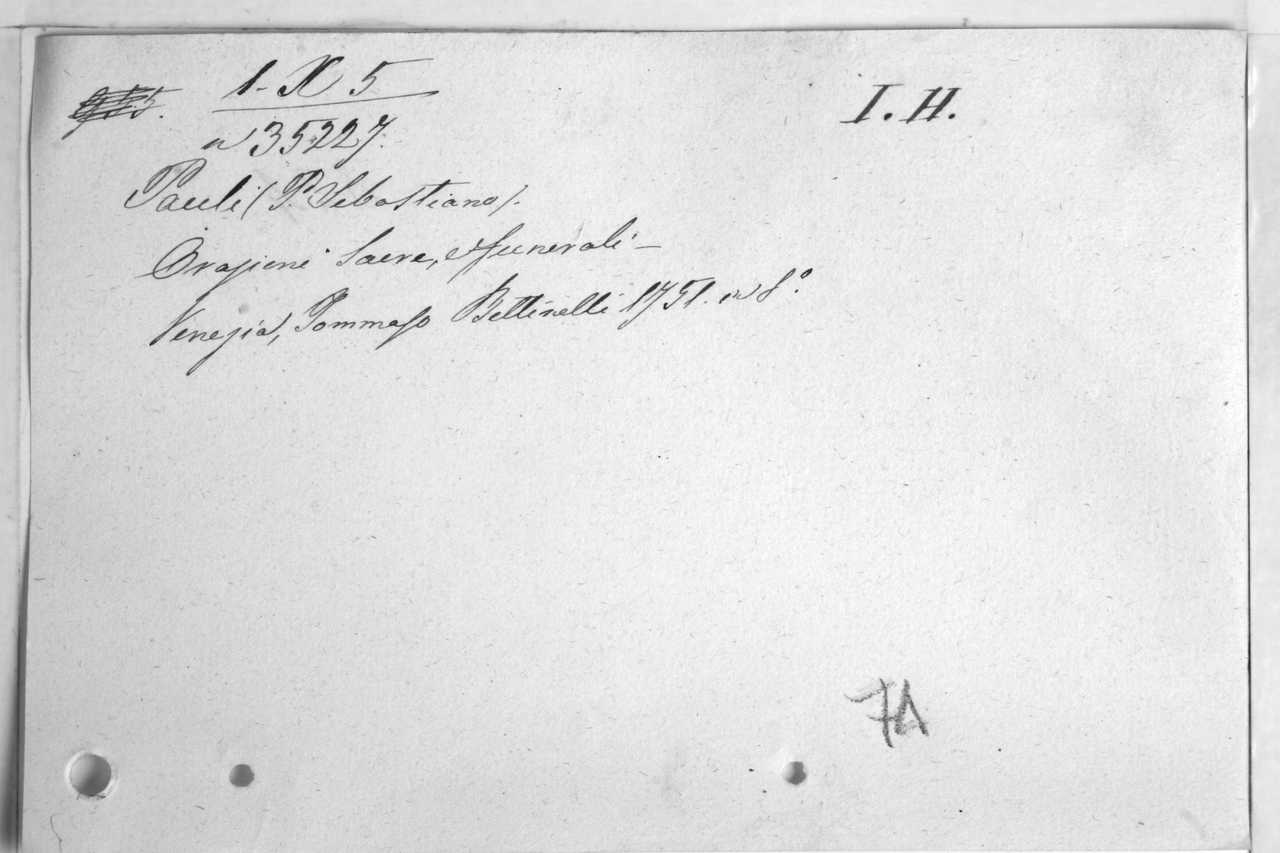 1-X 5
n 35227.
I. H.
Pauli (P. Sebastiano).
Orazioni Sacre, e funerali -
Venezia, Tommaso Bettinelli 1751. in 8°